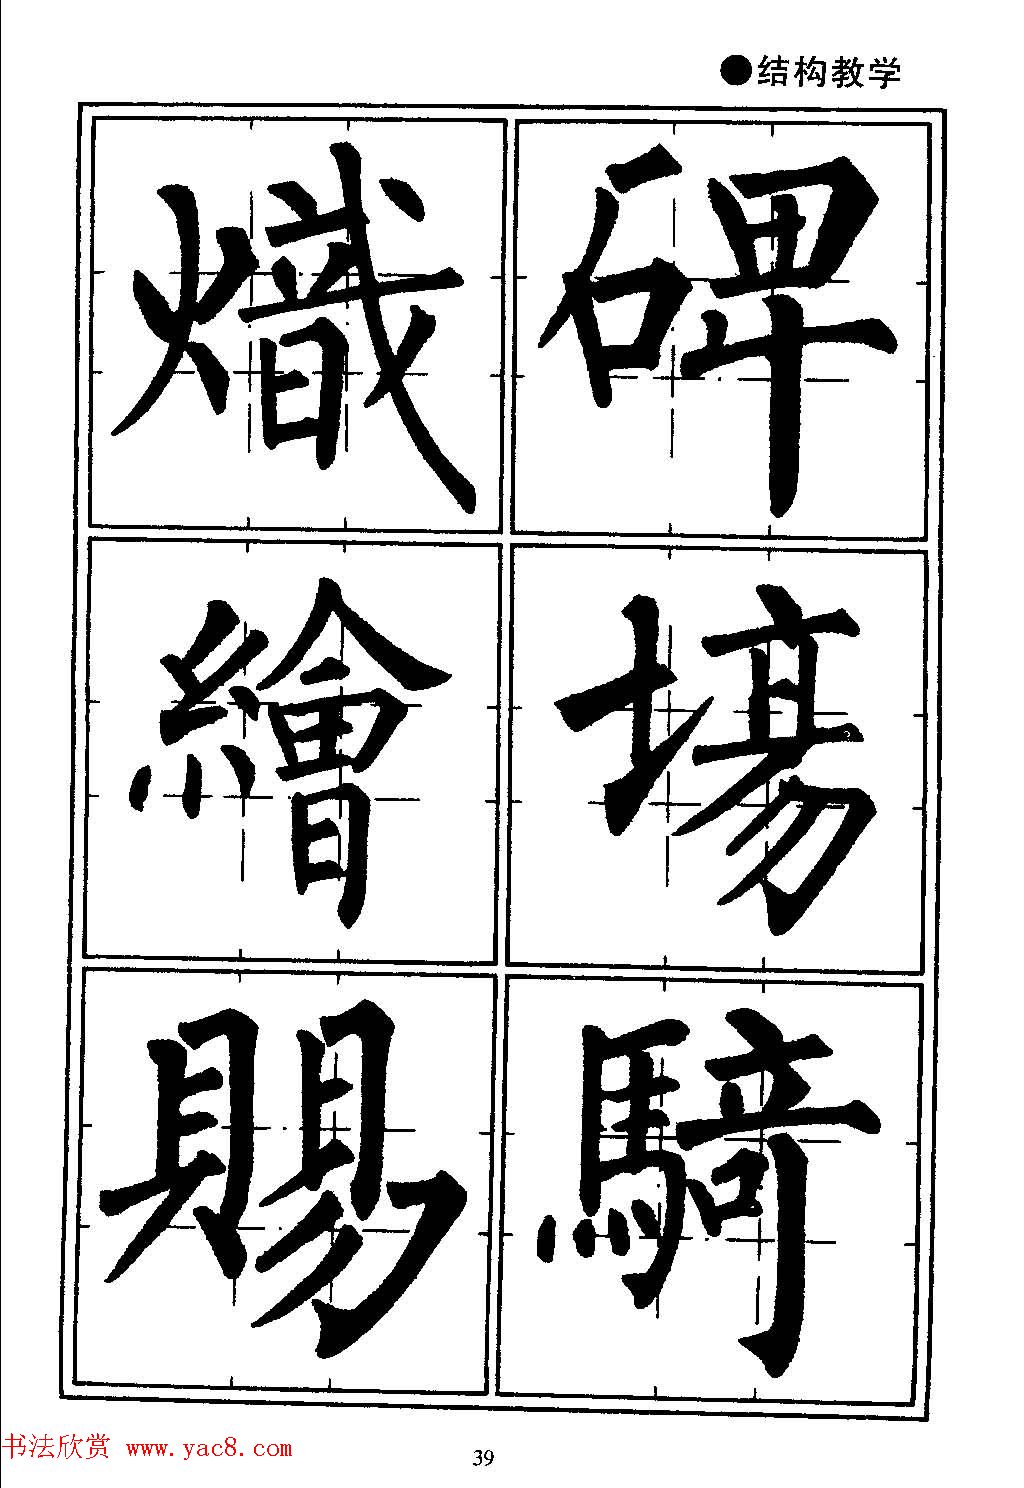 ●结构教学
熾 碑
繪 場
賜 騎
书法欣赏 www.yac8.com
39